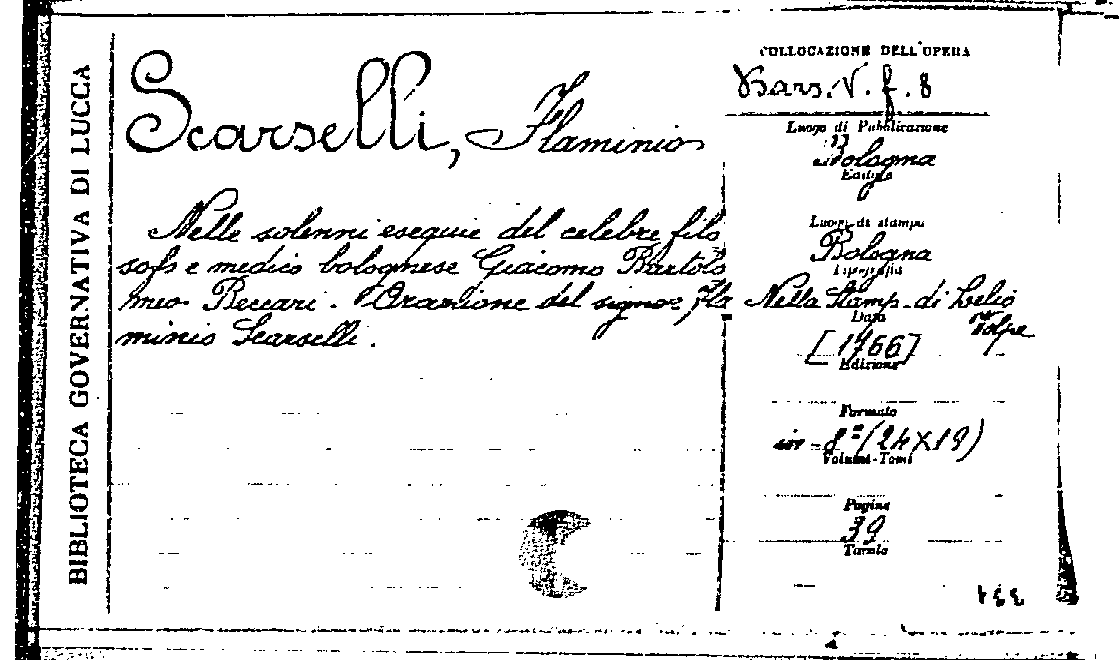 BIBLIOTECA GOVERNATIVA DI LUCCA
Scarselli, Flaminio
Nelle solenni esequie del celebre filo
sofo e medico bolognese Giacomo Bartolo
meo Beccari. Orazione del signor Fla
minio Scarselli.
COLLOCAZIONE DELL'OPERA
Bars. V. f. 8
Luogo di Pubblicazione
Bologna
Editore
Luogo di stampa
Bologna
Tipografia
Nella Stamp. di Lelio
Volpe
Data
[1766]
Edizione
Formato
in-8° (24X19)
Volumi-Tomi
Pagine
39
Tavole